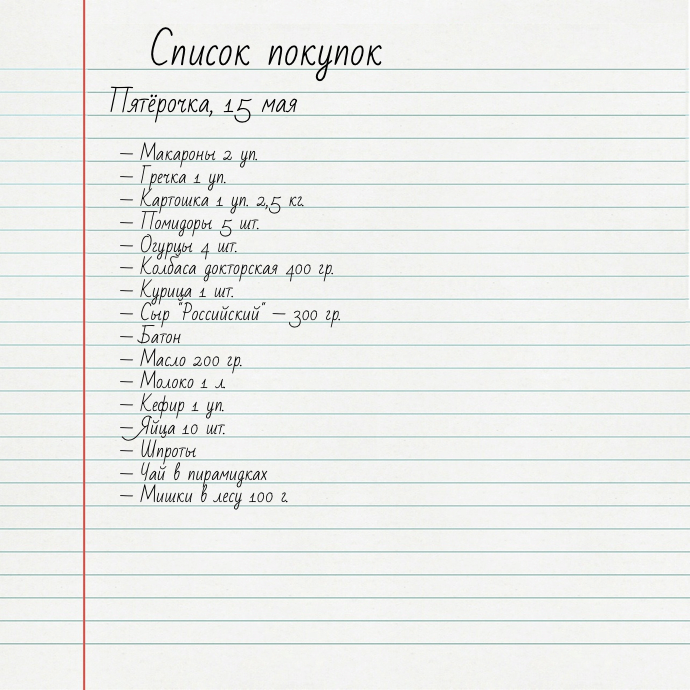 Список покупок
Пятёрочка, 15 мая
— Макароны 2 уп.
— Гречка 1 уп.
— Картошка 1 уп. 2,5 кг.
— Помидоры 5 шт.
— Огурцы 4 шт.
— Колбаса докторская 400 гр.
— Курица 1 шт.
— Сыр "Российский" — 300 гр.
— Батон
— Масло 200 гр.
— Молоко 1 л.
— Кефир 1 уп.
— Яйца 10 шт.
— Шпроты
— Чай в пирамидках
— Мишки в лесу 100 г.